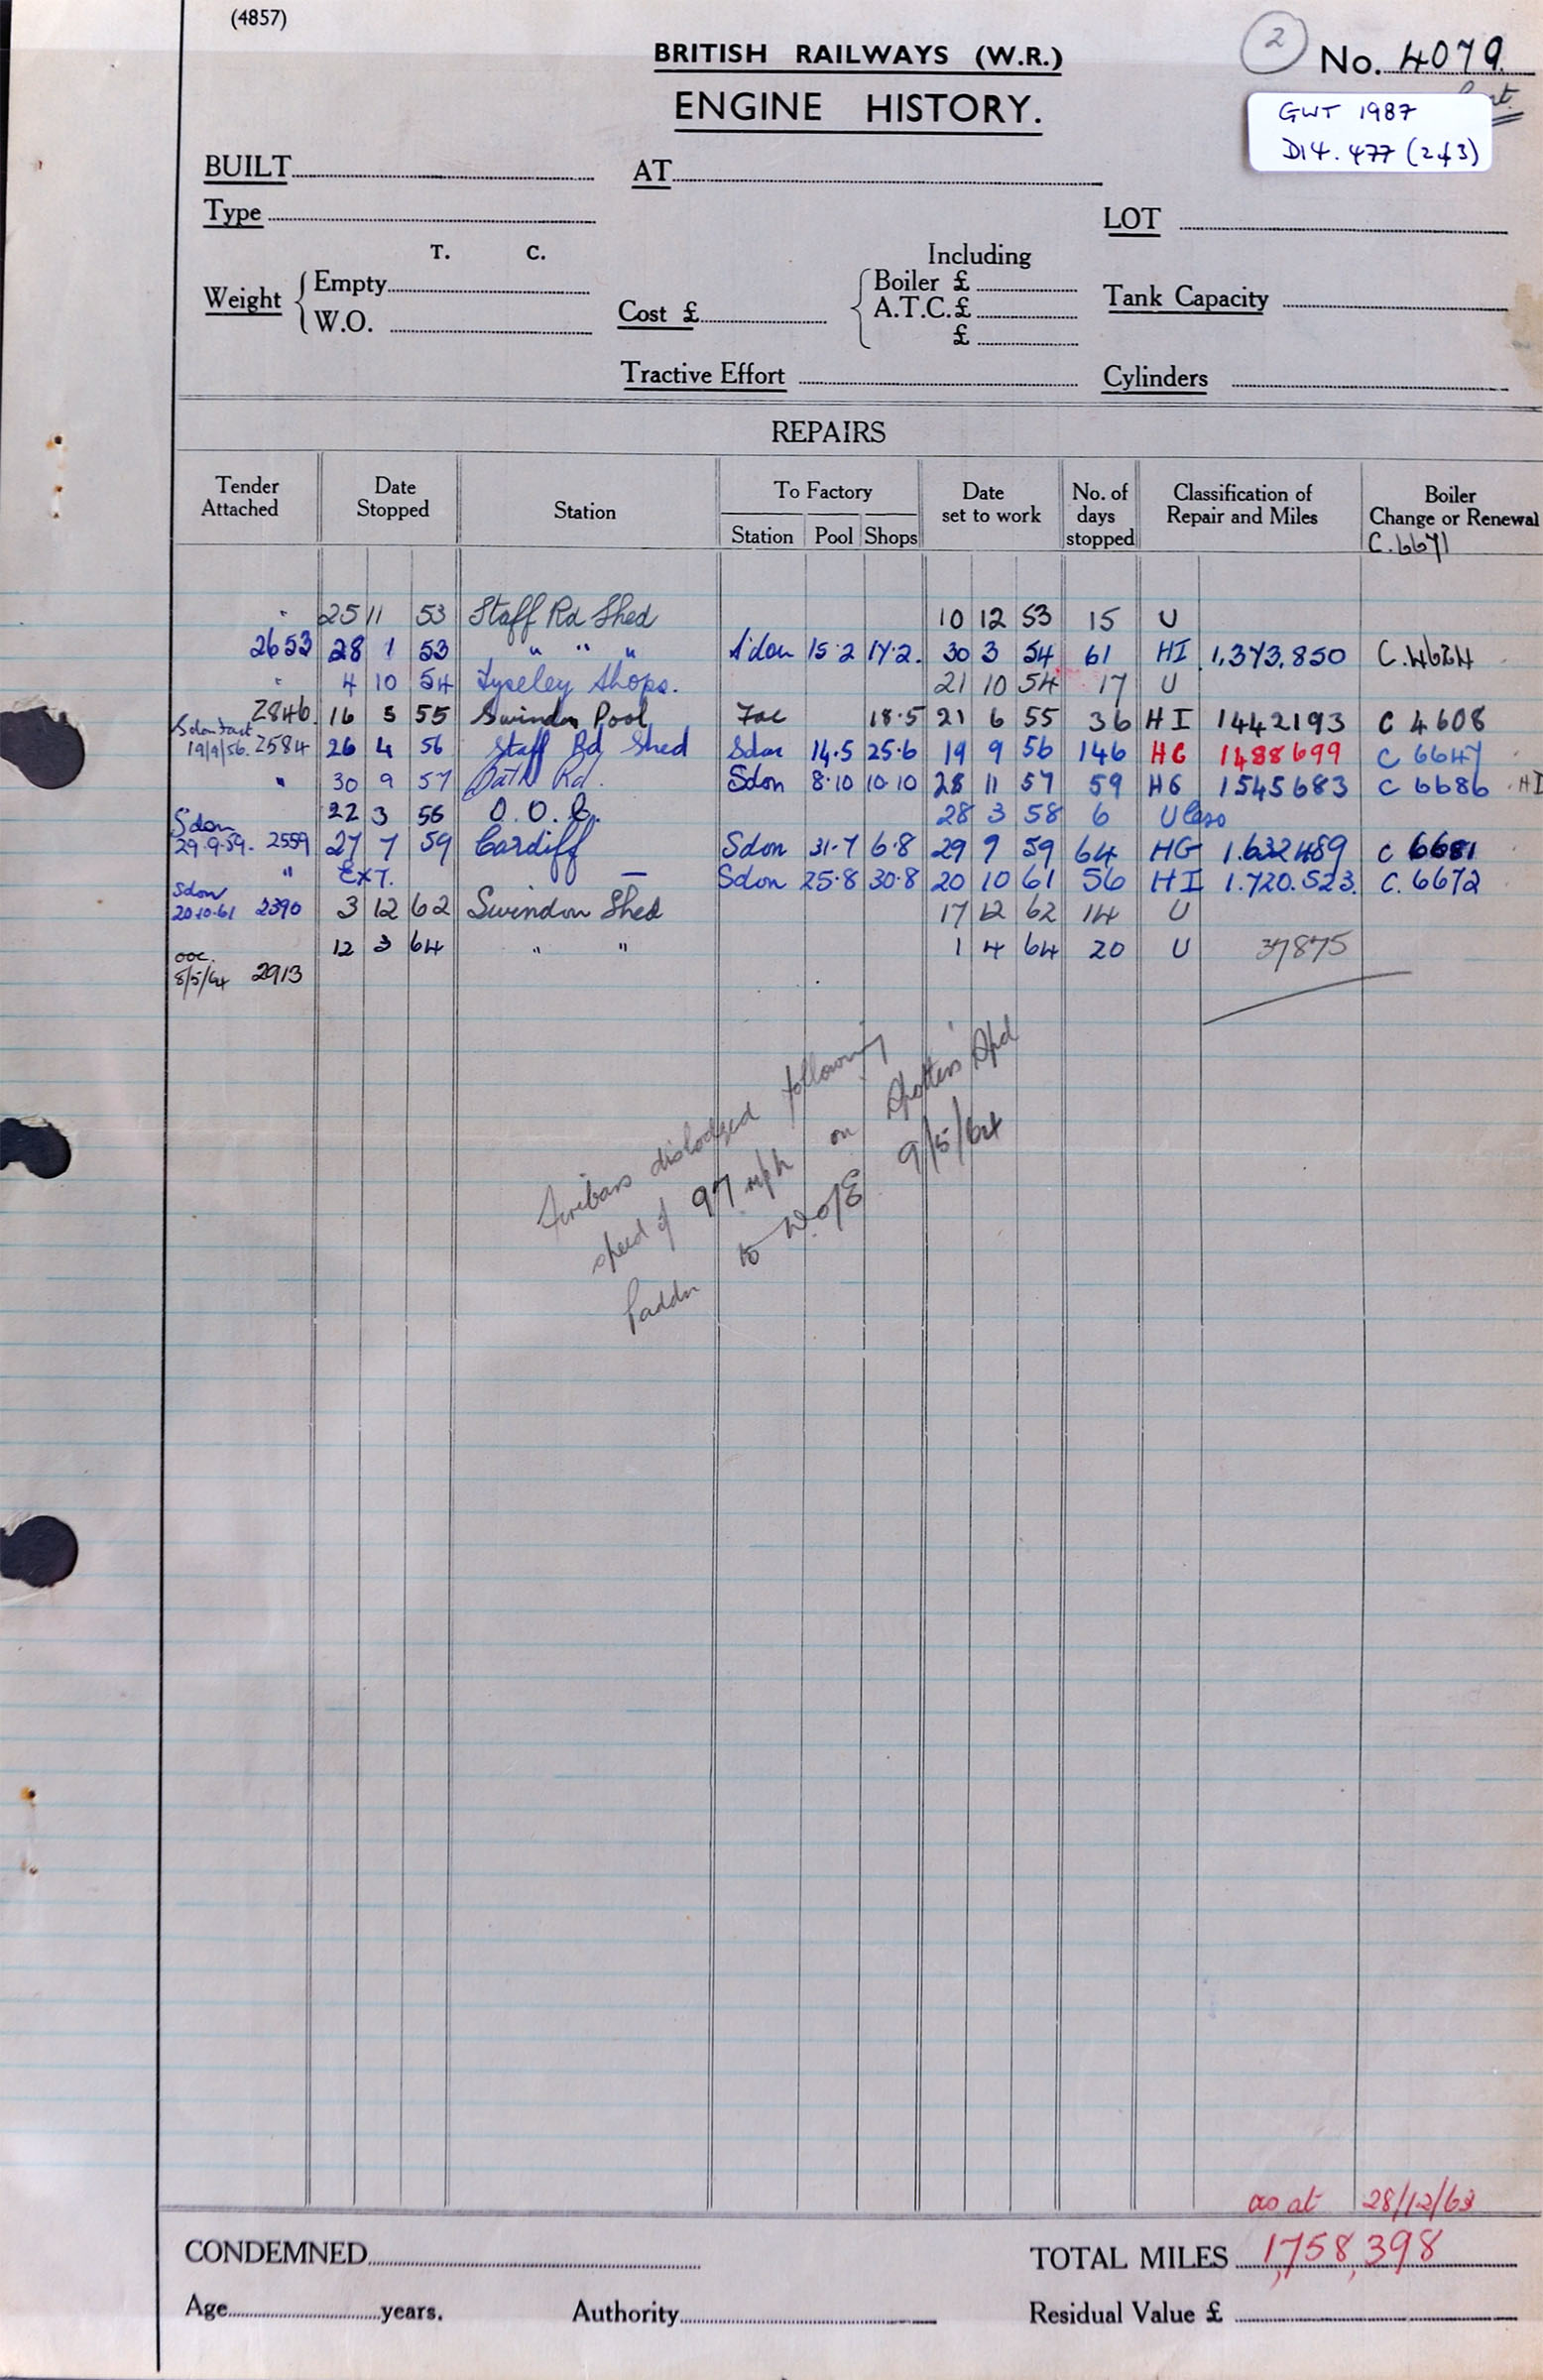 (4857)
BRITISH RAILWAYS (W.R.)
2 No. 4079.
ENGINE HISTORY.
GWT 1987
D14.477 (2of3)
BUILT
AT
Type
LOT
T. C.
Including
Weight
Empty
W.O.
Cost £
Boiler £
A.T.C.£
£
Tank Capacity
Tractive Effort
Cylinders
REPAIRS
Tender Attached
Date Stopped
Station
To Factory
Station Pool Shops
Date set to work
No. of days stopped
Classification of Repair and Miles
Boiler Change or Renewal
C.6671
" 25 11 53 Staff Rd Shed 10 12 53 15 U
2653 28 1 53 " " " S'don 15.2 17.2. 30 3 54 61 HI 1,373,850 C.4624
" 4 10 54 Tyseley Shops. 21 10 54 17 U
2846. 16 5 55 Swindon Pool Fac 18.5 21 6 55 36 HI 1442193 C 4608
Sdon Fact
19/9/56. 2584 26 4 56 Staff Rd Shed Sdon 14.5 25.6 19 9 56 146 HG 1488699 C 6647
" 30 9 57 Bath Rd. Sdon 8.10 10.10 28 11 57 59 HG 1545683 C 6686 HI
22 3 58 O.O.C. 28 3 58 6 U Caso
Sdon
29.9.59. 2559 27 7 59 Cardiff Sdon 31.7 6.8 29 9 59 64 HG 1.632489 C 6681
" EXT. — Sdon 25.8 30.8 20 10 61 56 HI 1.720.523. C. 6672
Sdon
20.10.61 2390 3 12 62 Swindon Shed 17 12 62 14 U
12 3 64 " " 1 4 64 20 U 37875
ooc.
8/5/64 2913
Firebars dislodged following
speed of 97 mph on Spotters' Spl
Paddn to W.o/E 9/5/64
as at 28/12/63
CONDEMNED
TOTAL MILES 1,758,398
Age years.
Authority
Residual Value £